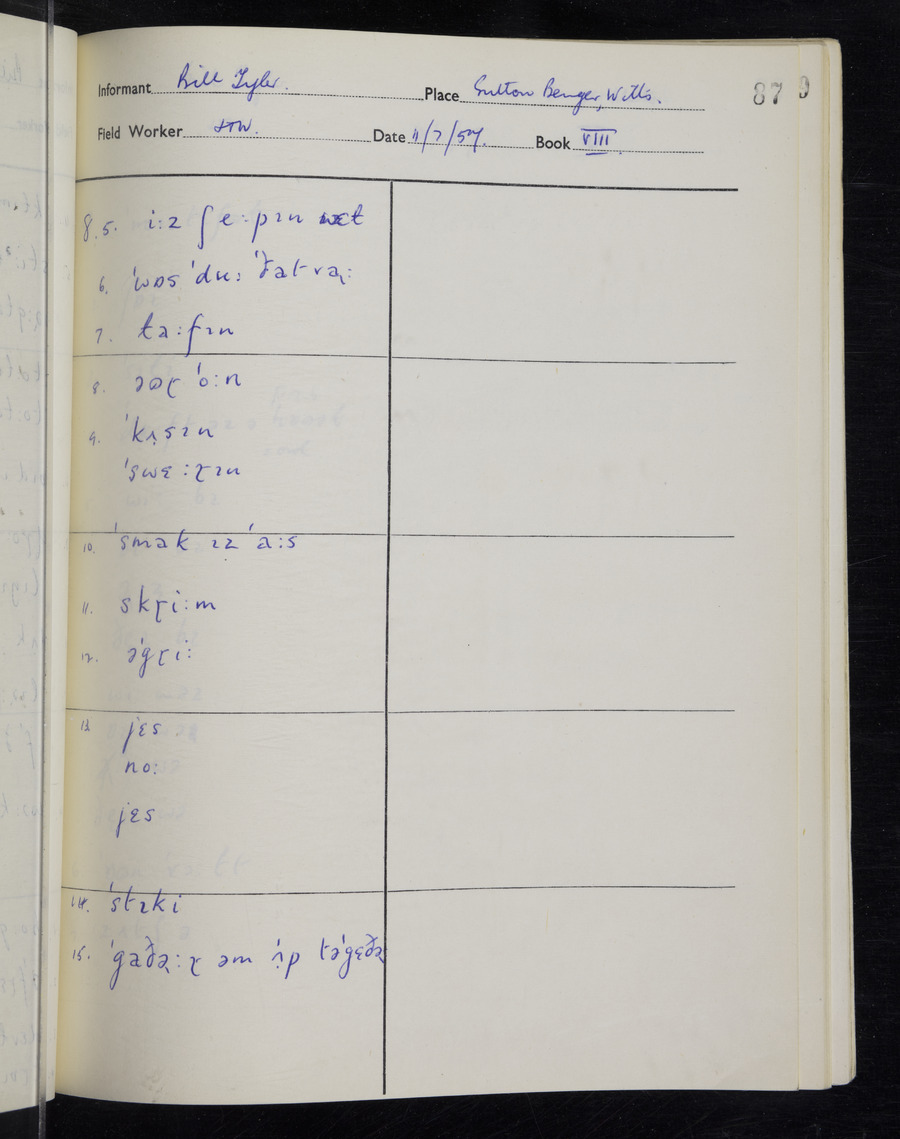 Informant Bill Tyler. Place Sutton Benger, Wilts. 87 9
Field Worker JTW. Date 11/7/57. Book VIII
8.5. i:z ʃe:pɪn wɛt
6. ˈwɒs ˈdu: ˈðat va̢:
7. ta:fɪn
8. əʊɽ ˈo:n
9. ˈkɪ̣sɪn
ˈswɛ:ɽɪn
10. ˈsmak ɪz ˈa:s
11. skɽi:m
12. əˈgɽi:
13 jɛs
no:
jɛs
14. ˈstɪki
15. ˈgaðə̢:ɽ əm ˈʌ̣p təˈgɛðə̢